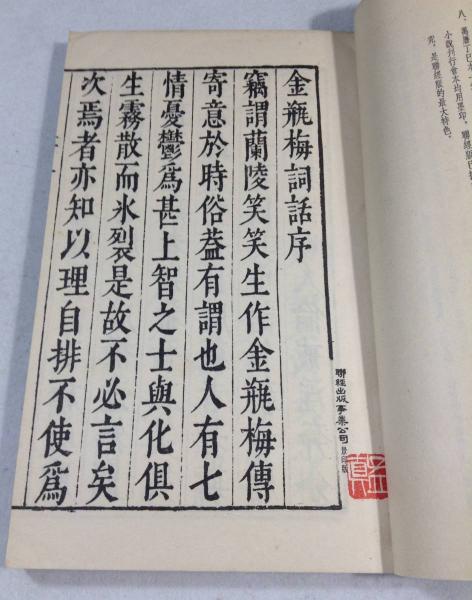 八、萬曆丁巳本
小說刊行會本均用墨印，聯經版
完，是聯經版的最大特色。
金瓶梅詞話序
竊謂蘭陵笑笑生作金瓶梅傳
寄意於時俗蓋有謂也人有七
情憂鬱為甚上智之士與化俱
生霧散而氷裂是故不必言矣
次焉者亦知以理自排不使為
聯經出版事業公司 景印版